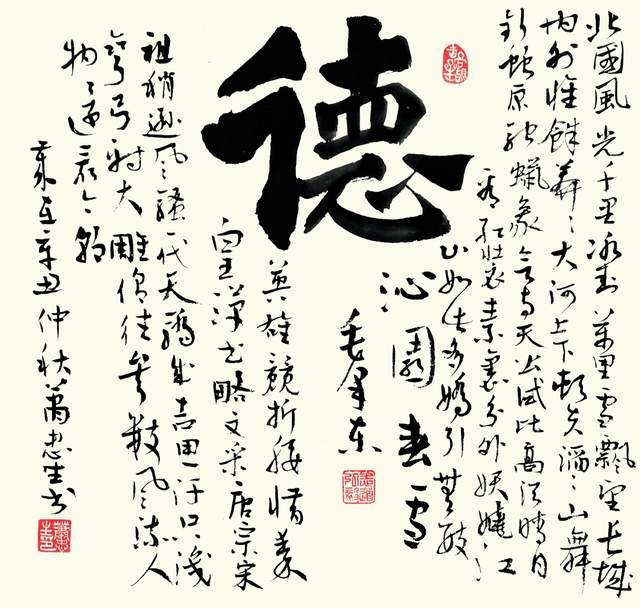 德
北國風光千里冰封萬里雪飄望長城
内外惟餘莽々大河上下頓失滔々山舞
銀蛇原驰蠟象欲与天公試比高須晴日
看红裝素裹分外妖娆江
山如此多嬌引無數
沁園春雪
毛泽东
英雄競折腰惜秦
皇漢武略文采唐宗宋
祖稍逊風騷一代天骄成吉思汗只識
彎弓射大雕俱往矣數風流人
物還看今朝
歲在辛丑仲秋萧忠生书